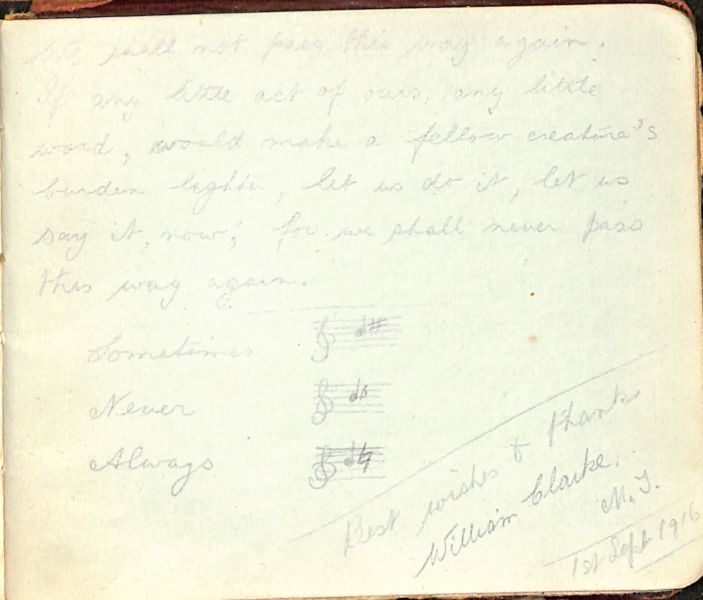 We shall not pass this way again.
If any little act of ours, any little
word, would make a fellow creature's
burden lighter, let us do it, let us
say it, now; for we shall never pass
this way again.
Sometimes
Never
Always
Best wishes & thanks
William Clarke.
M.T.
1st Sept 1916